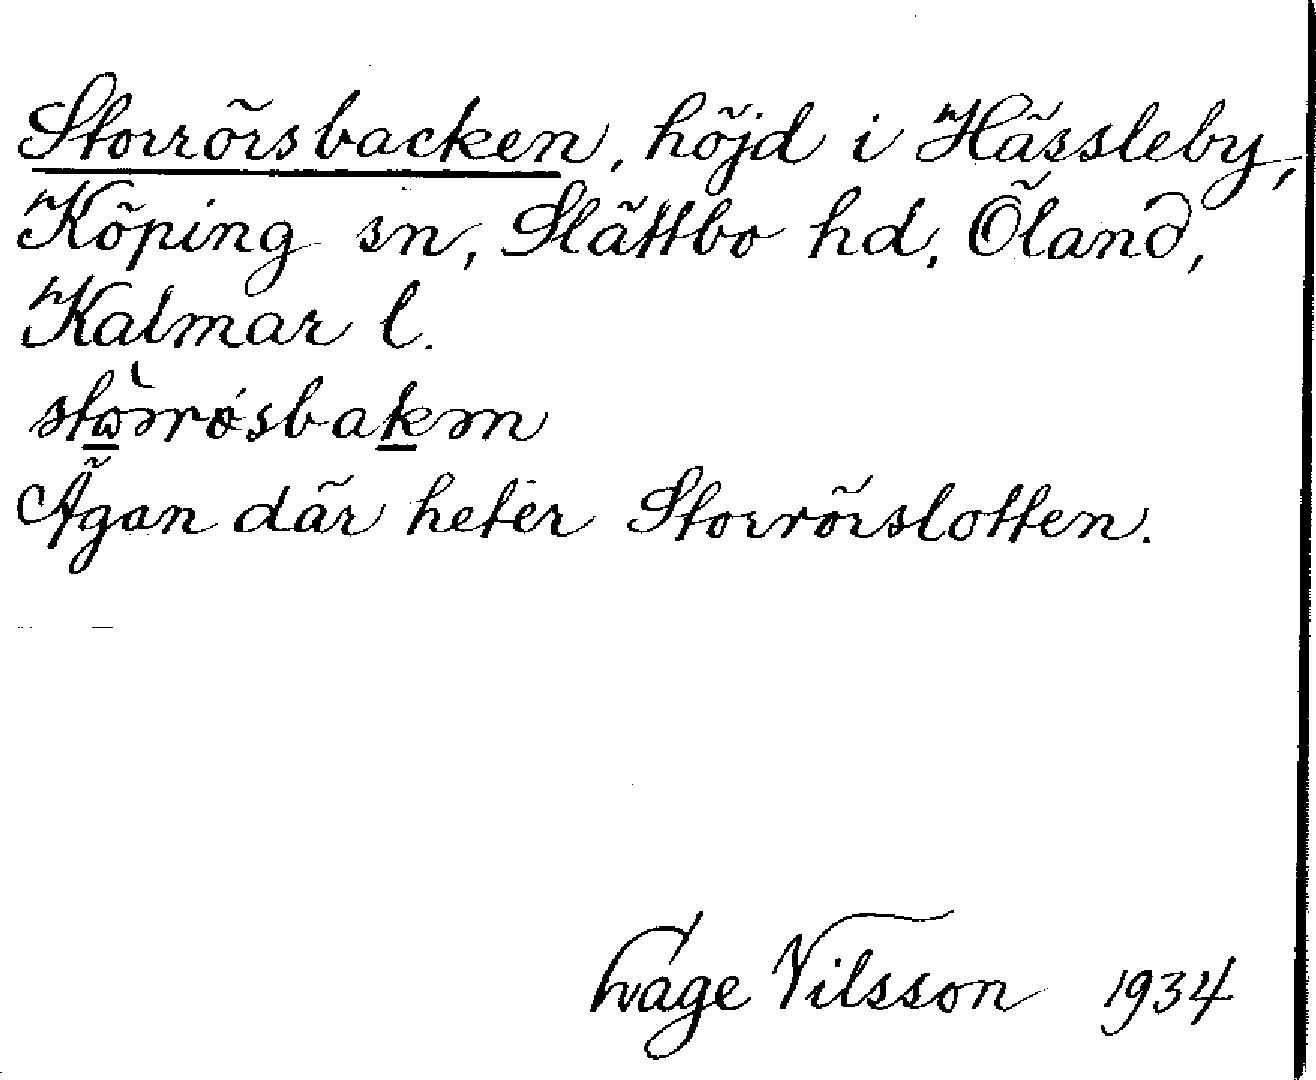 Storrörsbacken, höjd i Hässleby,
Köping sn, Slättbo hd, Öland,
Kalmar l.
Ägan där heter Storrörslotten.
Nilsson 1934